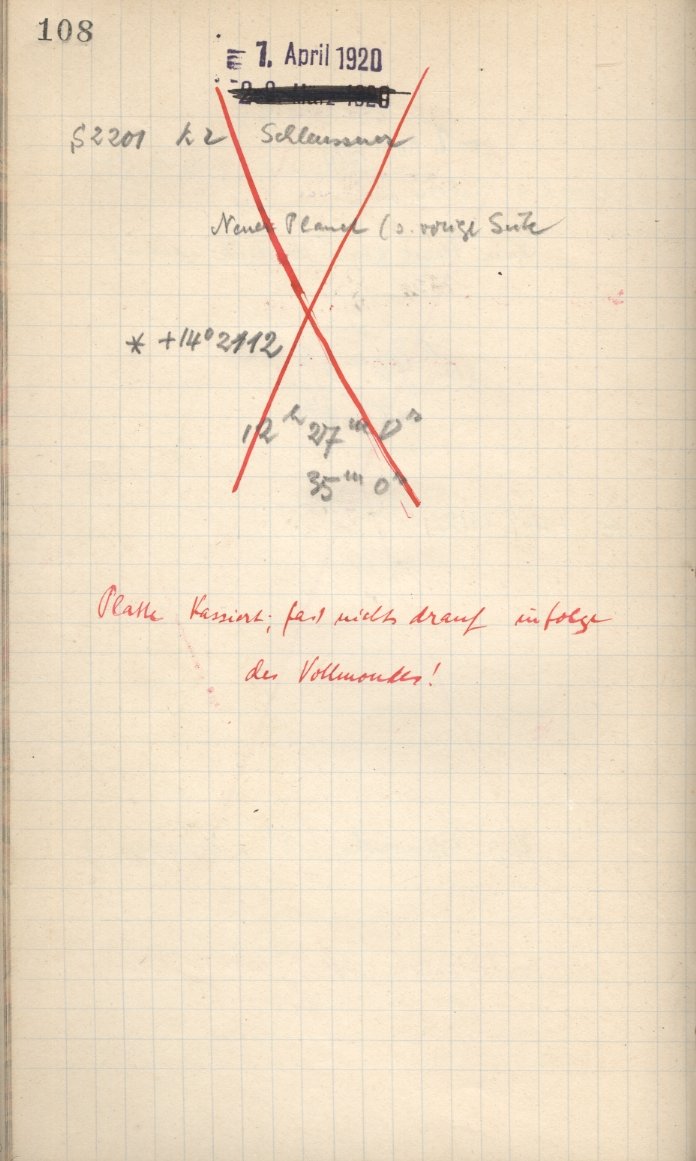 108
1. April 1920
S2201 h2 Schleussner
Neuer Planet (s. vorige Seite
* +14° 2112
12ʰ 27ᵐ 0ˢ
35ᵐ 0ˢ
Platte kassiert; fast nichts drauf infolge
des Vollmondes!